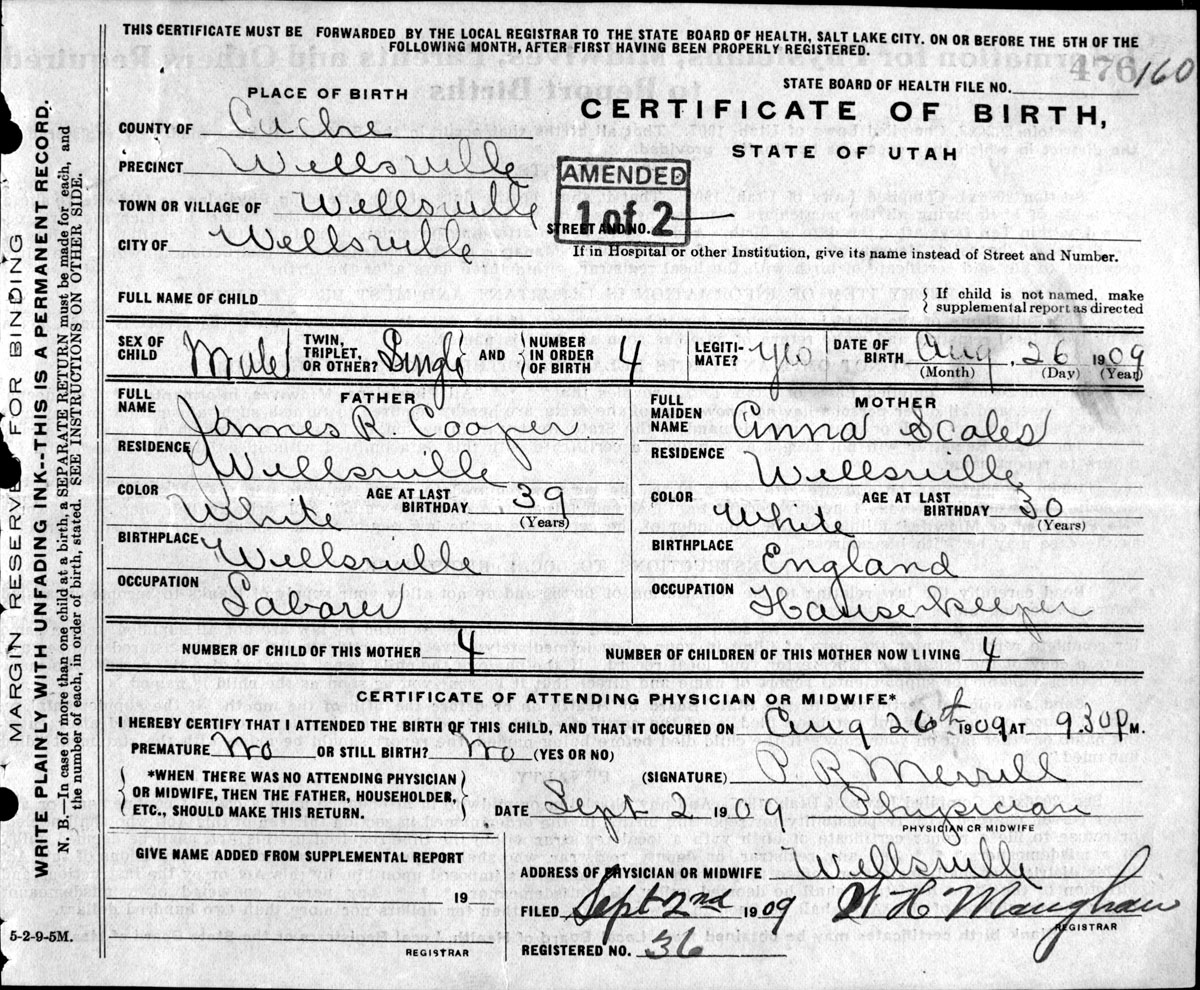 THIS CERTIFICATE MUST BE FORWARDED BY THE LOCAL REGISTRAR TO THE STATE BOARD OF HEALTH, SALT LAKE CITY. ON OR BEFORE THE 5TH OF THE
FOLLOWING MONTH, AFTER FIRST HAVING BEEN PROPERLY REGISTERED.
476 160
STATE BOARD OF HEALTH FILE NO.
PLACE OF BIRTH
CERTIFICATE OF BIRTH,
STATE OF UTAH
COUNTY OF Cache
PRECINCT Wellsville
AMENDED
1 of 2
TOWN OR VILLAGE OF Wellsville
STREET AND NO.
CITY OF Wellsville
If in Hospital or other Institution, give its name instead of Street and Number.
FULL NAME OF CHILD
If child is not named, make
supplemental report as directed
SEX OF CHILD Male
TWIN, TRIPLET, OR OTHER? Single AND NUMBER IN ORDER OF BIRTH 4
LEGITIMATE? yes
DATE OF BIRTH Aug. 26 1909
(Month) (Day) (Year)
FATHER
FULL NAME James R. Cooper
RESIDENCE Wellsville
COLOR White AGE AT LAST BIRTHDAY 39
(Years)
BIRTHPLACE Wellsville
OCCUPATION Laborer
MOTHER
FULL MAIDEN NAME Anna Scales
RESIDENCE Wellsville
COLOR White AGE AT LAST BIRTHDAY 30
(Years)
BIRTHPLACE England
OCCUPATION Housekeeper
NUMBER OF CHILD OF THIS MOTHER 4 NUMBER OF CHILDREN OF THIS MOTHER NOW LIVING 4
CERTIFICATE OF ATTENDING PHYSICIAN OR MIDWIFE*
I HEREBY CERTIFY THAT I ATTENDED THE BIRTH OF THIS CHILD, AND THAT IT OCCURED ON Aug 26th 1909 AT 9.30 P M.
PREMATURE No OR STILL BIRTH? No (YES OR NO)
*WHEN THERE WAS NO ATTENDING PHYSICIAN
OR MIDWIFE, THEN THE FATHER, HOUSEHOLDER,
ETC., SHOULD MAKE THIS RETURN.
(SIGNATURE) P. R. Merrill
DATE Sept 2 1909 Physician
PHYSICIAN OR MIDWIFE
GIVE NAME ADDED FROM SUPPLEMENTAL REPORT
19
REGISTRAR
ADDRESS OF PHYSICIAN OR MIDWIFE Wellsville
FILED Sept 2nd 1909 W H Maughan
REGISTRAR
REGISTERED NO. 36
5-2-9-5M.
MARGIN RESERVED FOR BINDING
WRITE PLAINLY WITH UNFADING INK--THIS IS A PERMANENT RECORD.
N. B.—In case of more than one child at a birth, a SEPARATE RETURN must be made for each, and
the number of each, in order of birth, stated. SEE INSTRUCTIONS ON OTHER SIDE.